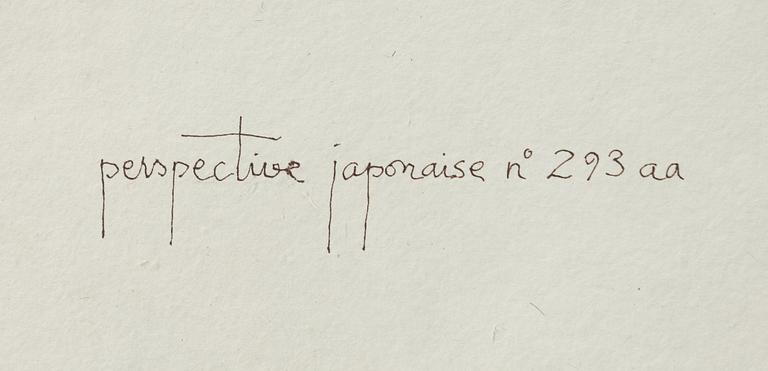 perspective japonaise n° 293 aa